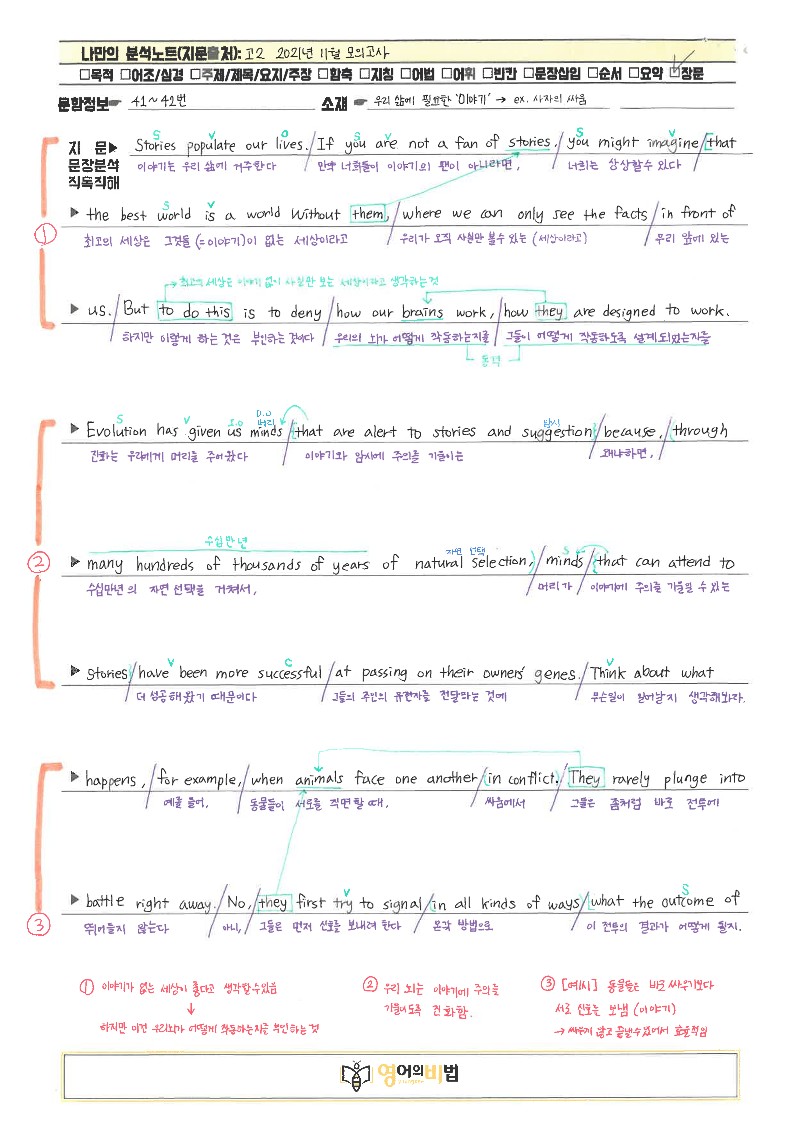 나만의 분석노트(지문출처): 고2 2021년 11월 모의고사
□목적 □어조/심경 □주제/제목/요지/주장 □함축 □지칭 □어법 □어휘 □빈칸 □문장삽입 □순서 □요약 ☑장문
문항정보☛ 41~42번 소재 ☛ 우리 삶에 필요한 '이야기' → ex. 사자의 싸움
S V O S V S V
지 문▶ Stories populate our lives. / If you are not a fan of stories, / you might imagine / [that
문장분석 이야기는 우리 삶에 거주한다 만약 너희들이 이야기의 팬이 아니라면, 너희는 상상할수 있다
직독직해
S V
▶ the best world is a world without them, / where we can only see the facts / in front of
① 최고의 세상은 그것들(=이야기)이 없는 세상이라고 우리가 오직 사실만 볼수 있는 (세상이라고) 우리 앞에 있는
→ 최고의 세상은 이야기 없이 사실만 보는 세상이라고 생각하는 것
▶ us. / But to do this is to deny / how our brains work, / how they are designed to work.
하지만 이렇게 하는 것은 부인하는 것이다 우리의 뇌가 어떻게 작동하는지를 그들이 어떻게 작동하도록 설계되었는지를
동격
S V I.O D.O 머리 암시
▶ Evolution has given us minds / {that are alert to stories and suggestion} / because, / (through
진화는 우리에게 머리를 주어왔다 이야기와 암시에 주의를 기울이는 왜냐하면,
수십만년 자연 선택 S
② ▶ many hundreds of thousands of years of natural selection,) / minds / {that can attend to
수십만년의 자연 선택을 거쳐서, 머리가 이야기에 주의를 기울일 수 있는
V C V
▶ stories} / have been more successful / at passing on their owners' genes. / Think about what
더 성공해왔기 때문이다 그들의 주인의 유전자를 전달하는 것에 무슨일이 일어날지 생각해봐라.
▶ happens, / for example, / when animals face one another / (in conflict.) / They rarely plunge into
예를 들어, 동물들이 서로를 직면할 때, 싸움에서 그들은 좀처럼 바로 전투에
V S
▶ battle right away. / No, / they first try to signal / in all kinds of ways / [what the outcome of
③ 뛰어들지 않는다 아니, 그들은 먼저 신호를 보내려 한다 온갖 방법으로 이 전투의 결과가 어떻게 될지.
① 이야기가 없는 세상이 좋다고 생각할수있음
↓
하지만 이건 우리뇌가 어떻게 작동하는지를 부인하는 것
② 우리 뇌는 이야기에 주의를
기울이도록 진화함.
③ [예시] 동물들은 바로 싸우기보다
서로 신호를 보냄 (이야기)
→ 싸우지 않고 끝낼수 있어서 효율적임
영어의비법